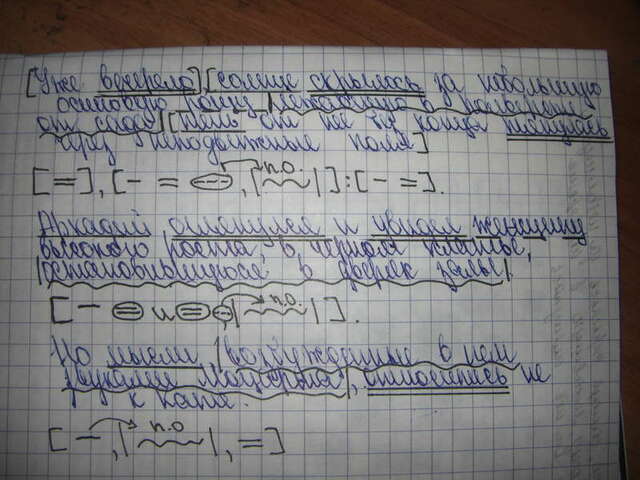 [Уже вечерело], [солнце скрылось за небольшую
осиновую рощу, |лежавшую в полверсте
от сада|: [тень от неё без конца тянулась
через неподвижные поля]
[=], [- = п.о. |~~~|]:[- =].
Аркадий оглянулся и увидел женщину
высокого роста, в чёрном платье,
|остановившуюся в дверях залы|.
[- = и = |п.о. ~~~|].
Но мысли, |возбуждённые в нем
звуками Моцарта|, относились не
к Кате.
[-, |п.о ~~~|, =]